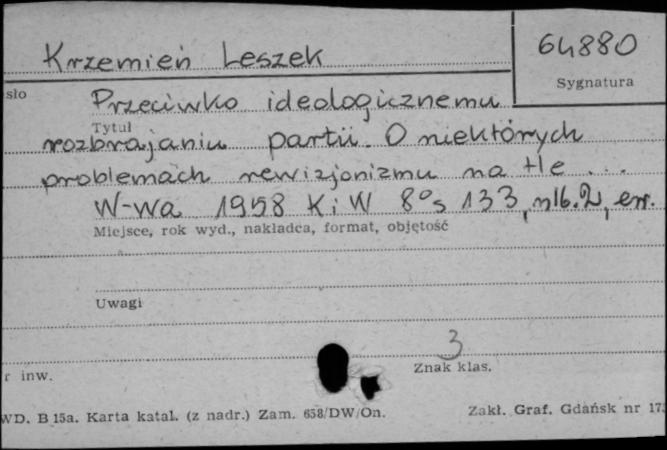 Krzemień Leszek
64880
Sygnatura
sło
Przeciwko ideologicznemu
Tytuł
rozbrajaniu partii. O niektórych
problemach rewizjonizmu na tle ...
W-wa 1958 KiW 8° s 133, nlb. 2, err.
Miejsce, rok wyd., nakładca, format, objętość
Uwagi
3
r inw.
Znak klas.
WD. B 15a. Karta katal. (z nadr.) Zam. 658/DW/On.
Zakł. Graf. Gdańsk nr 173